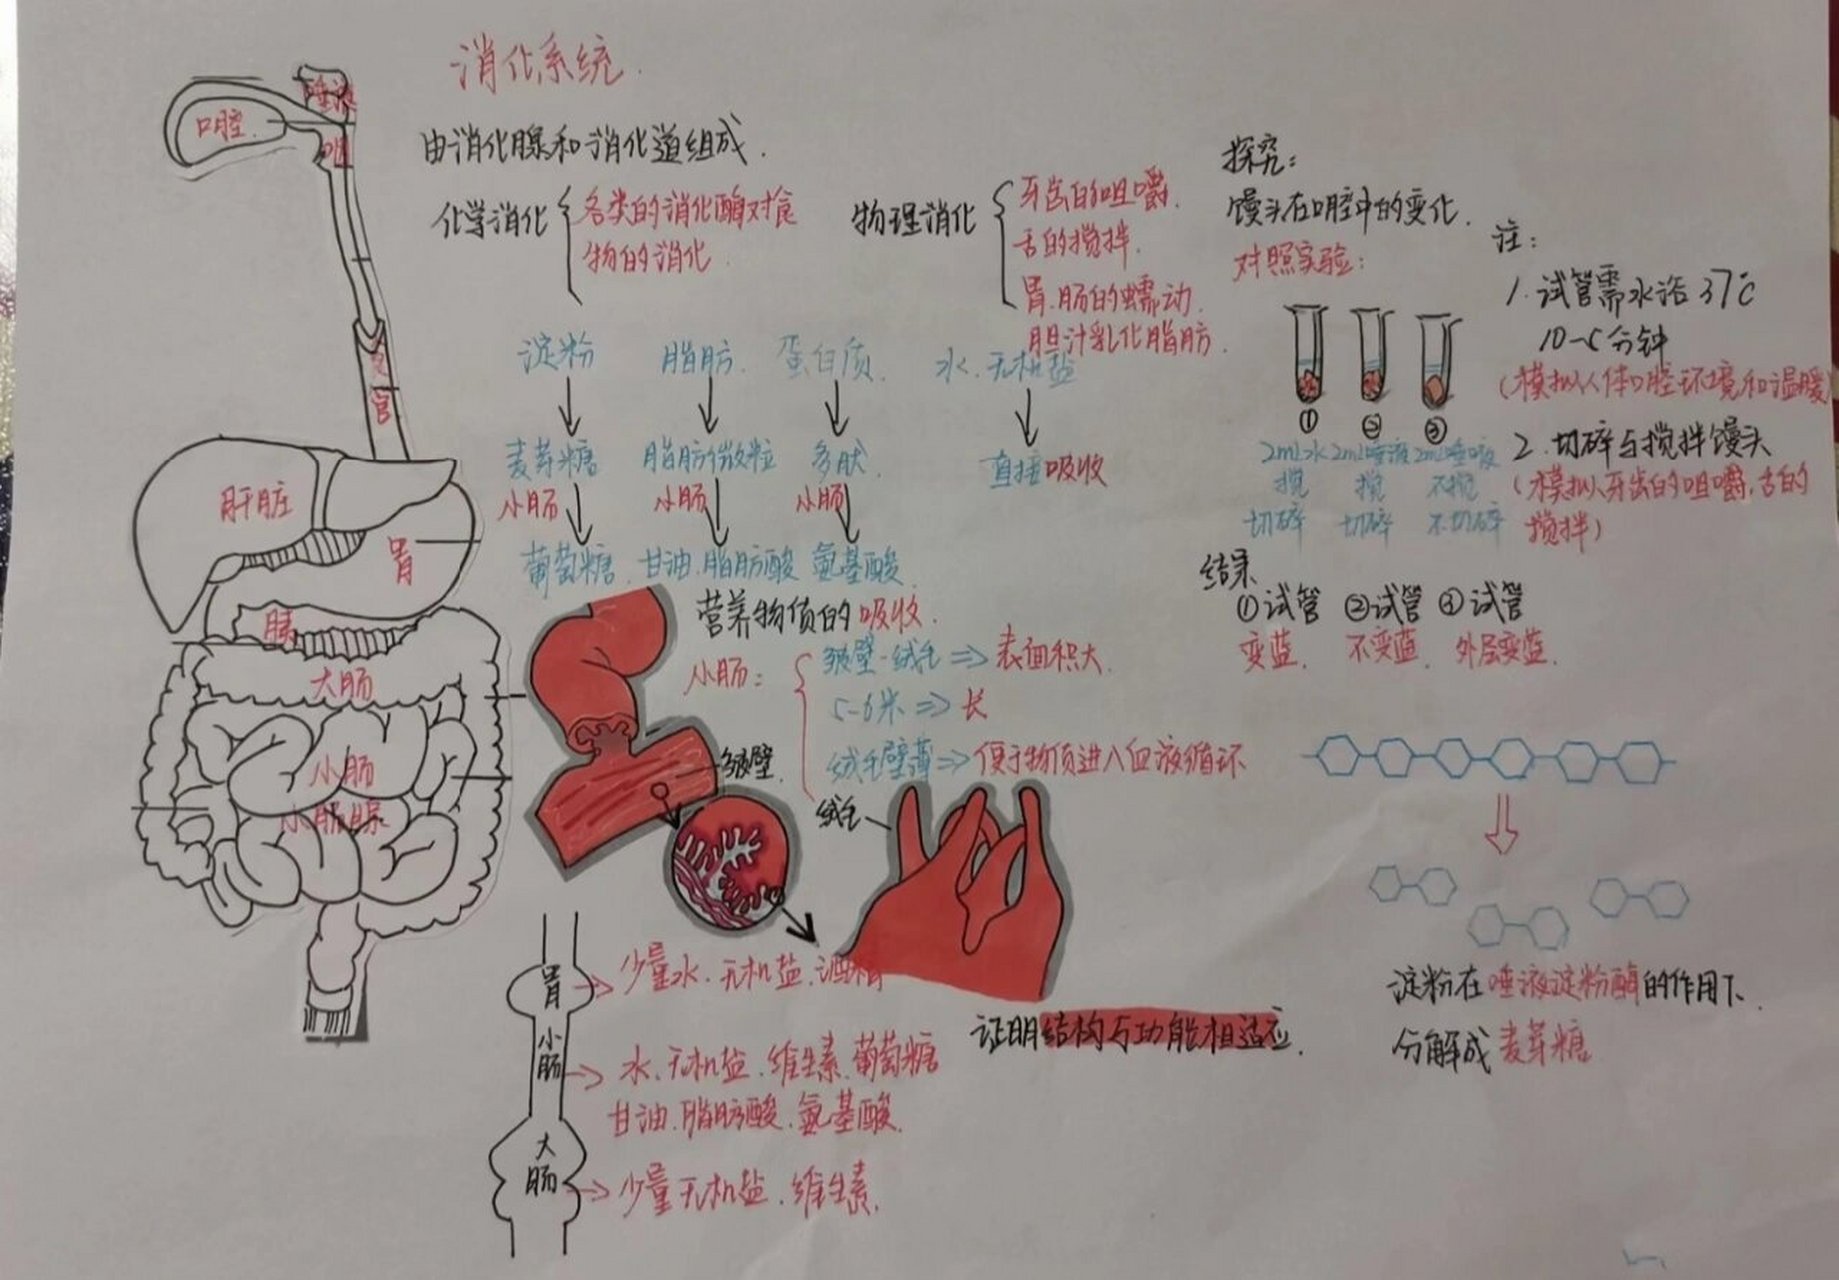 消化系统.
由消化腺和消化道组成.
化学消化
各类的消化酶对食
物的消化
物理消化
牙齿的咀嚼.
舌的搅拌.
胃.肠的蠕动.
胆汁乳化脂肪.
淀粉
脂肪.
蛋白质.
水.无机盐
麦芽糖
脂肪微粒
多肽.
直接吸收
小肠
小肠
小肠
葡萄糖.
甘油.脂肪酸
氨基酸.
营养物质的吸收.
小肠:
皱壁-绒毛⇒表面积大.
5-6米⇒长
绒毛壁薄⇒便于物质进入血液循环
皱壁.
绒毛
证明结构与功能相适应.
口腔.
咽
食管
肝脏
胃
胰
大肠
小肠
小肠腺
胃
少量水.无机盐.酒精
小肠
水.无机盐.维生素.葡萄糖
甘油.脂肪酸.氨基酸.
大肠
少量无机盐.维生素.
探究:
馒头在口腔中的变化.
对照实验:
① ② ③
2mL水 2mL唾液 2mL唾液
搅 搅 不搅
切碎 切碎 不切碎
结果
①试管 ②试管 ③试管
变蓝. 不变蓝. 外层变蓝.
注:
1.试管需水浴37℃
分钟
(模拟人体口腔环境和温暖)
2.切碎与搅拌馒头
(模拟牙齿的咀嚼,舌的
搅拌)
淀粉在唾液淀粉酶的作用下.
分解成麦芽糖